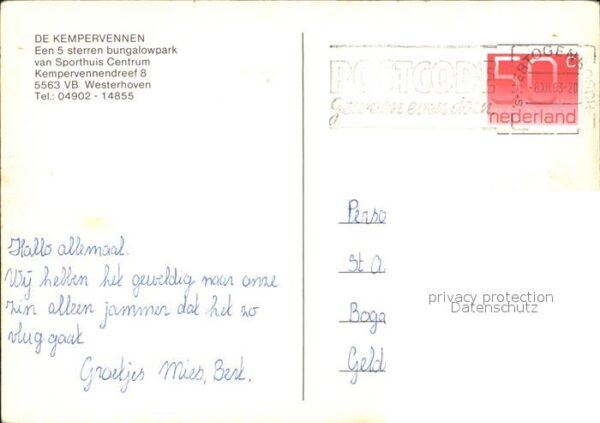 DE KEMPERVENNEN
Een 5 sterren bungalowpark
van Sporthuis Centrum
Kempervennendreef 8
5563 VB Westerhoven
Tel.: 04902 - 14855
POSTCODE
gewoon even doen
50 c
nederland
Hallo allemaal.
Wij hebben het geweldig naar onze
zin alleen jammer dat het zo
vlug gaat
Groetjes Mies, Bert.
Perso
St A
Boga
Geld
privacy protection
Datenschutz